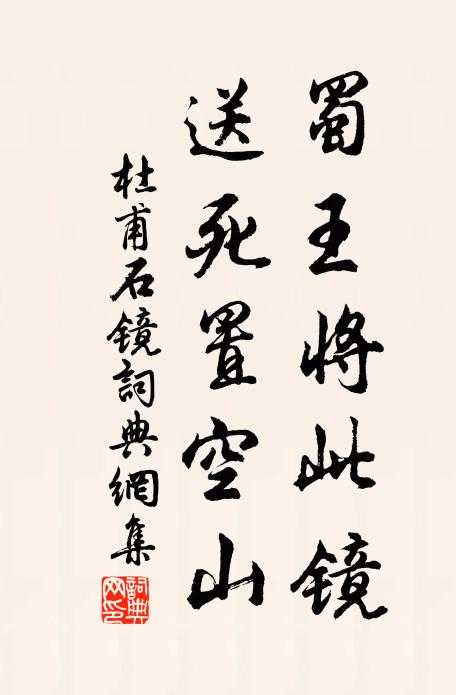 蜀王将此镜
送死置空山
杜甫石镜詞典網集
詞典网印